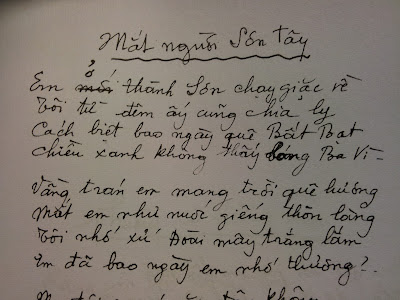 Mắt người Sơn Tây
Em ở thành Sơn chạy giặc về
Tôi từ đêm ấy cũng chia ly
Cách biệt bao ngày quê Bất Bạt
Chiều xanh không thấy bóng Ba Vì -
Vầng trán em mang trời quê hương
Mắt em như nước giếng thôn làng
Tôi nhớ xứ Đoài mây trắng lắm
Em đã bao ngày em nhớ thương?.